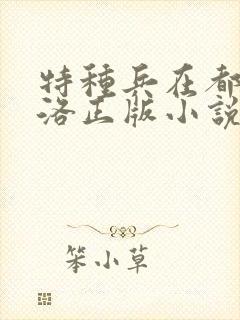 特種兵在都
洛正版小說
笨小草